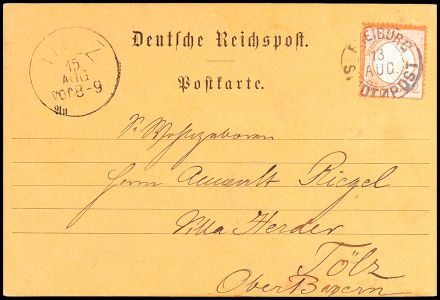 Deutsche Reichspost.
Postkarte.
TÖLZ
15
AUG
8-9
FREIBURG
3
AUG.
STADTPOST
An
Sr Wohlgeboren
Herrn Anwalt Riegel
Villa Herder
Tölz
Ober Bayern